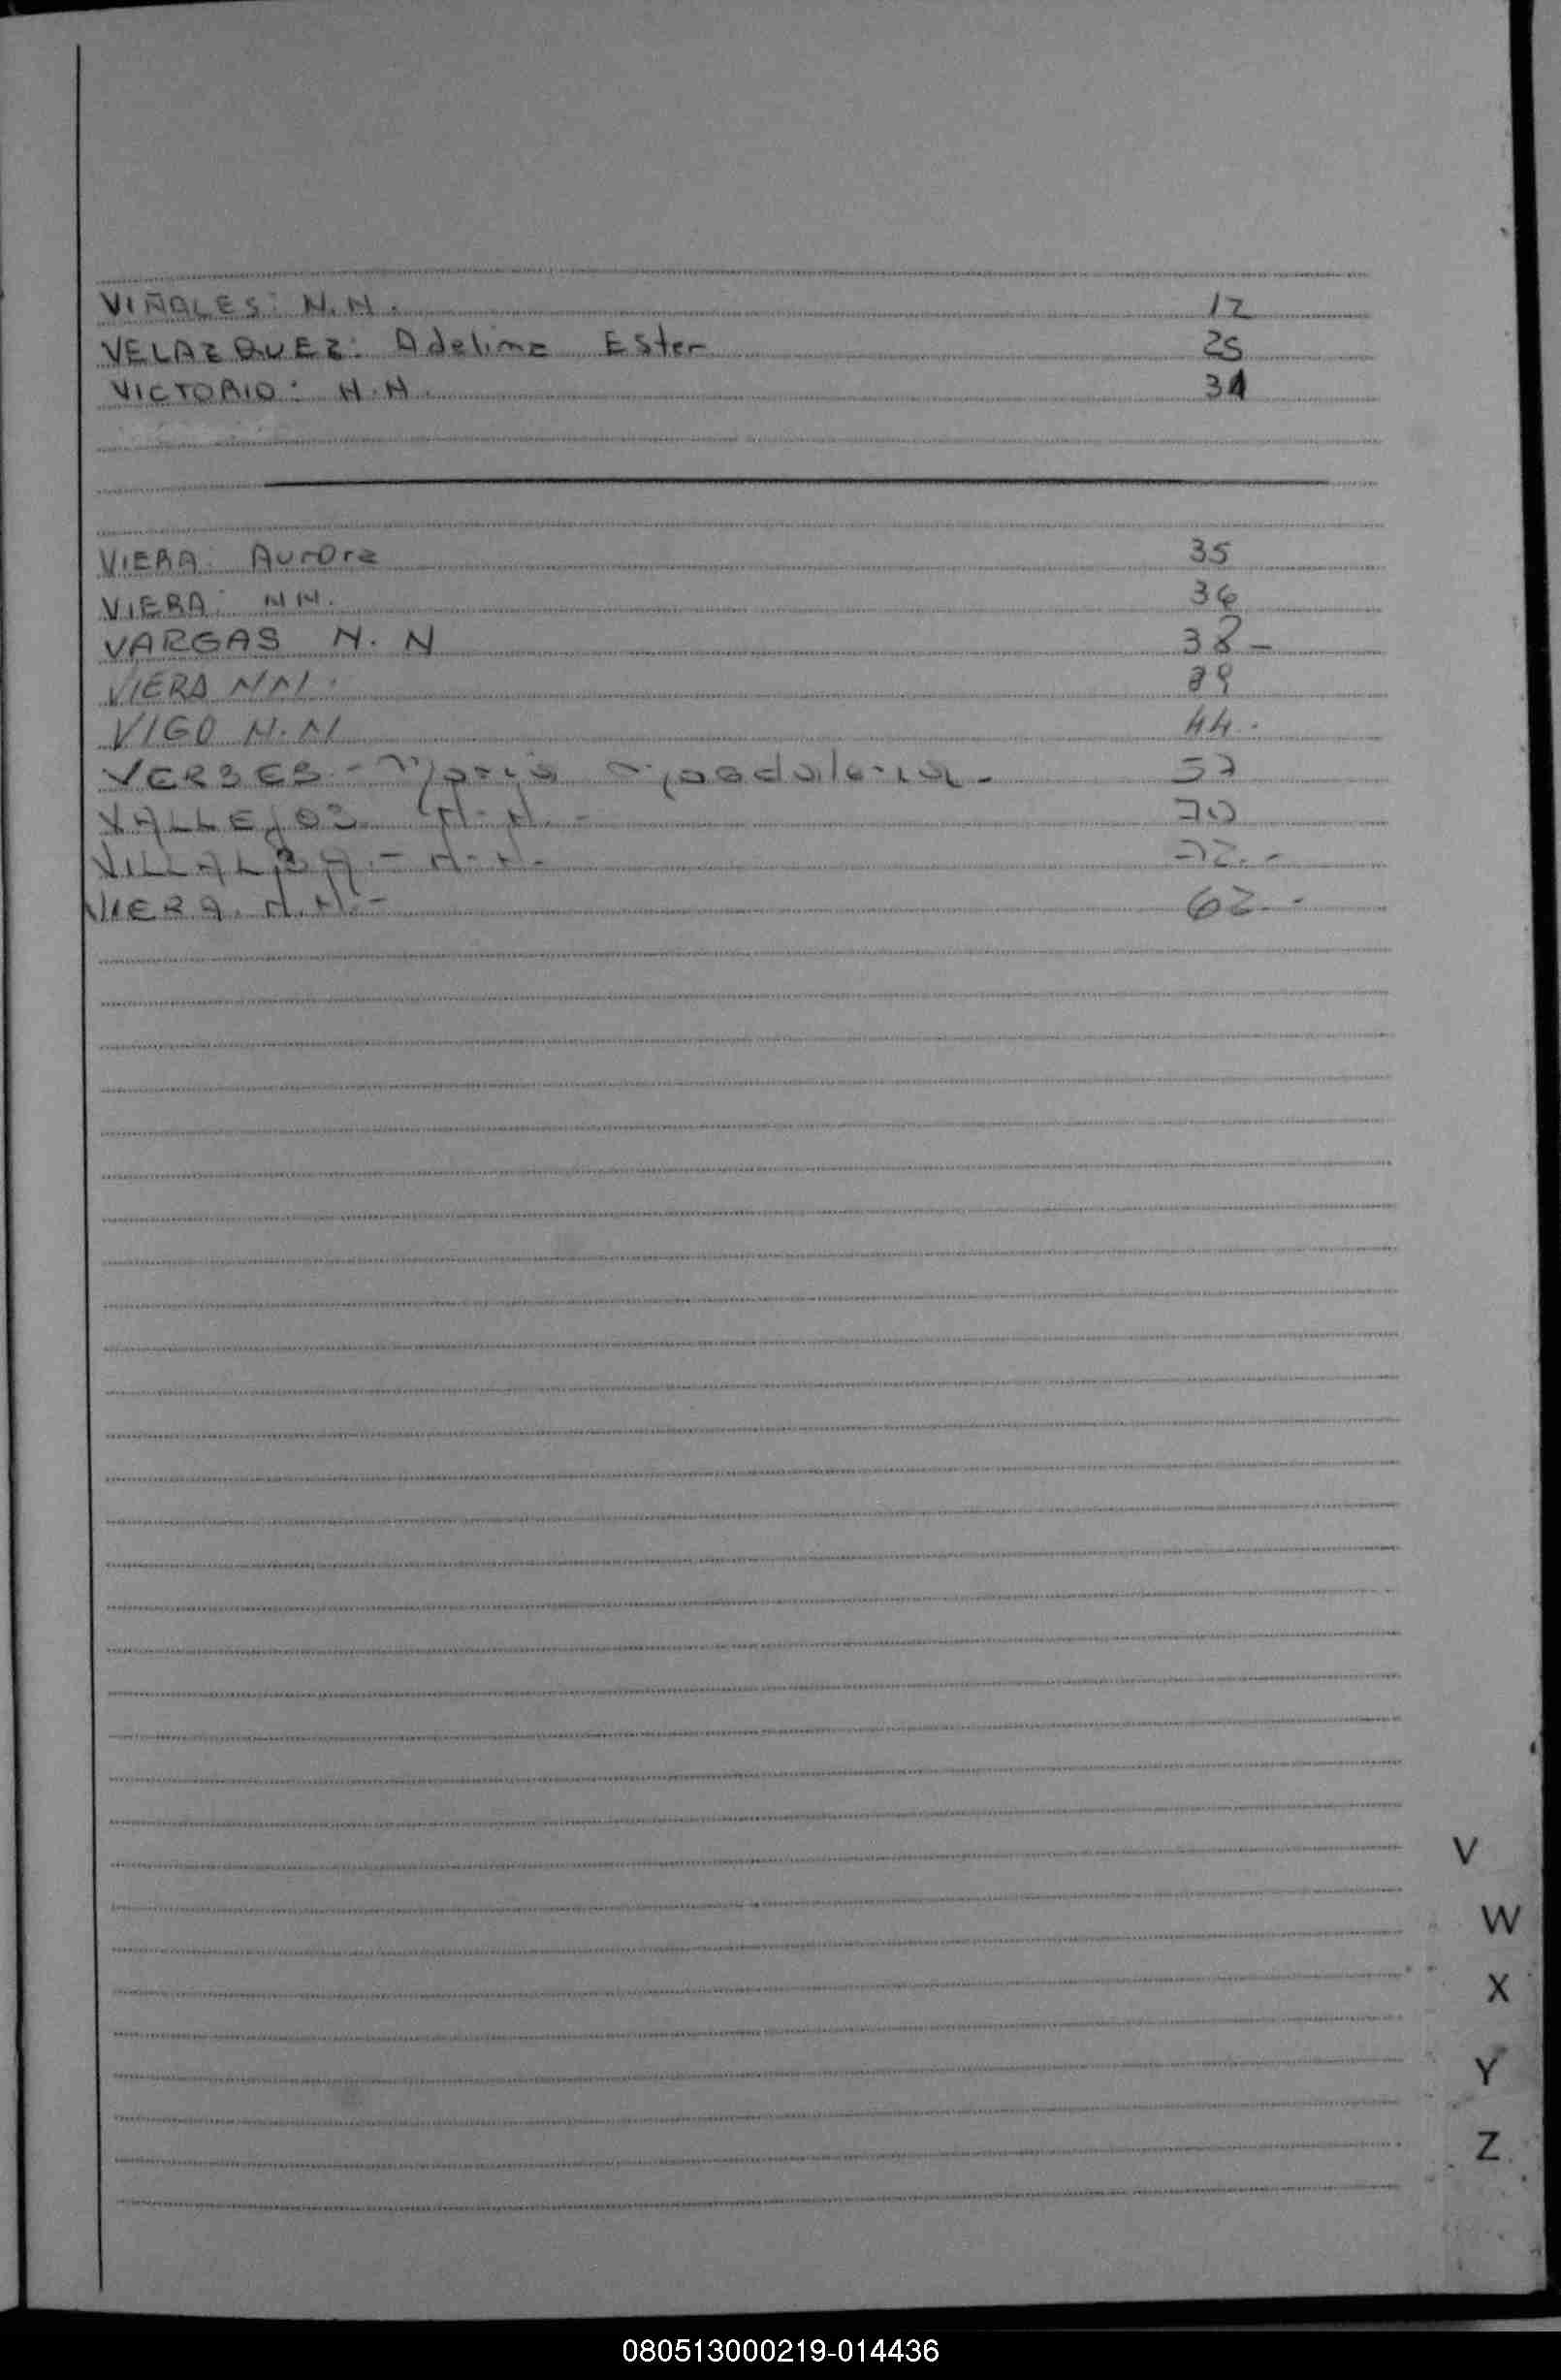 VIÑALES: N.N. 12
VELAZQUEZ: Adelina Ester 25
VICTORIO: N.N. 31
VIERA: Aurora 35
VIERA: NN. 36
VARGAS N. N 38-
VIERA NN. 39
VIGO N.N 44.
María Magdalena.- 57
VALLEJOS N.N.- 70
VILLALBA.- N.N.- 72.-
VIERA. N.N.- 62.-
V
W
X
Y
Z
080513000219-014436